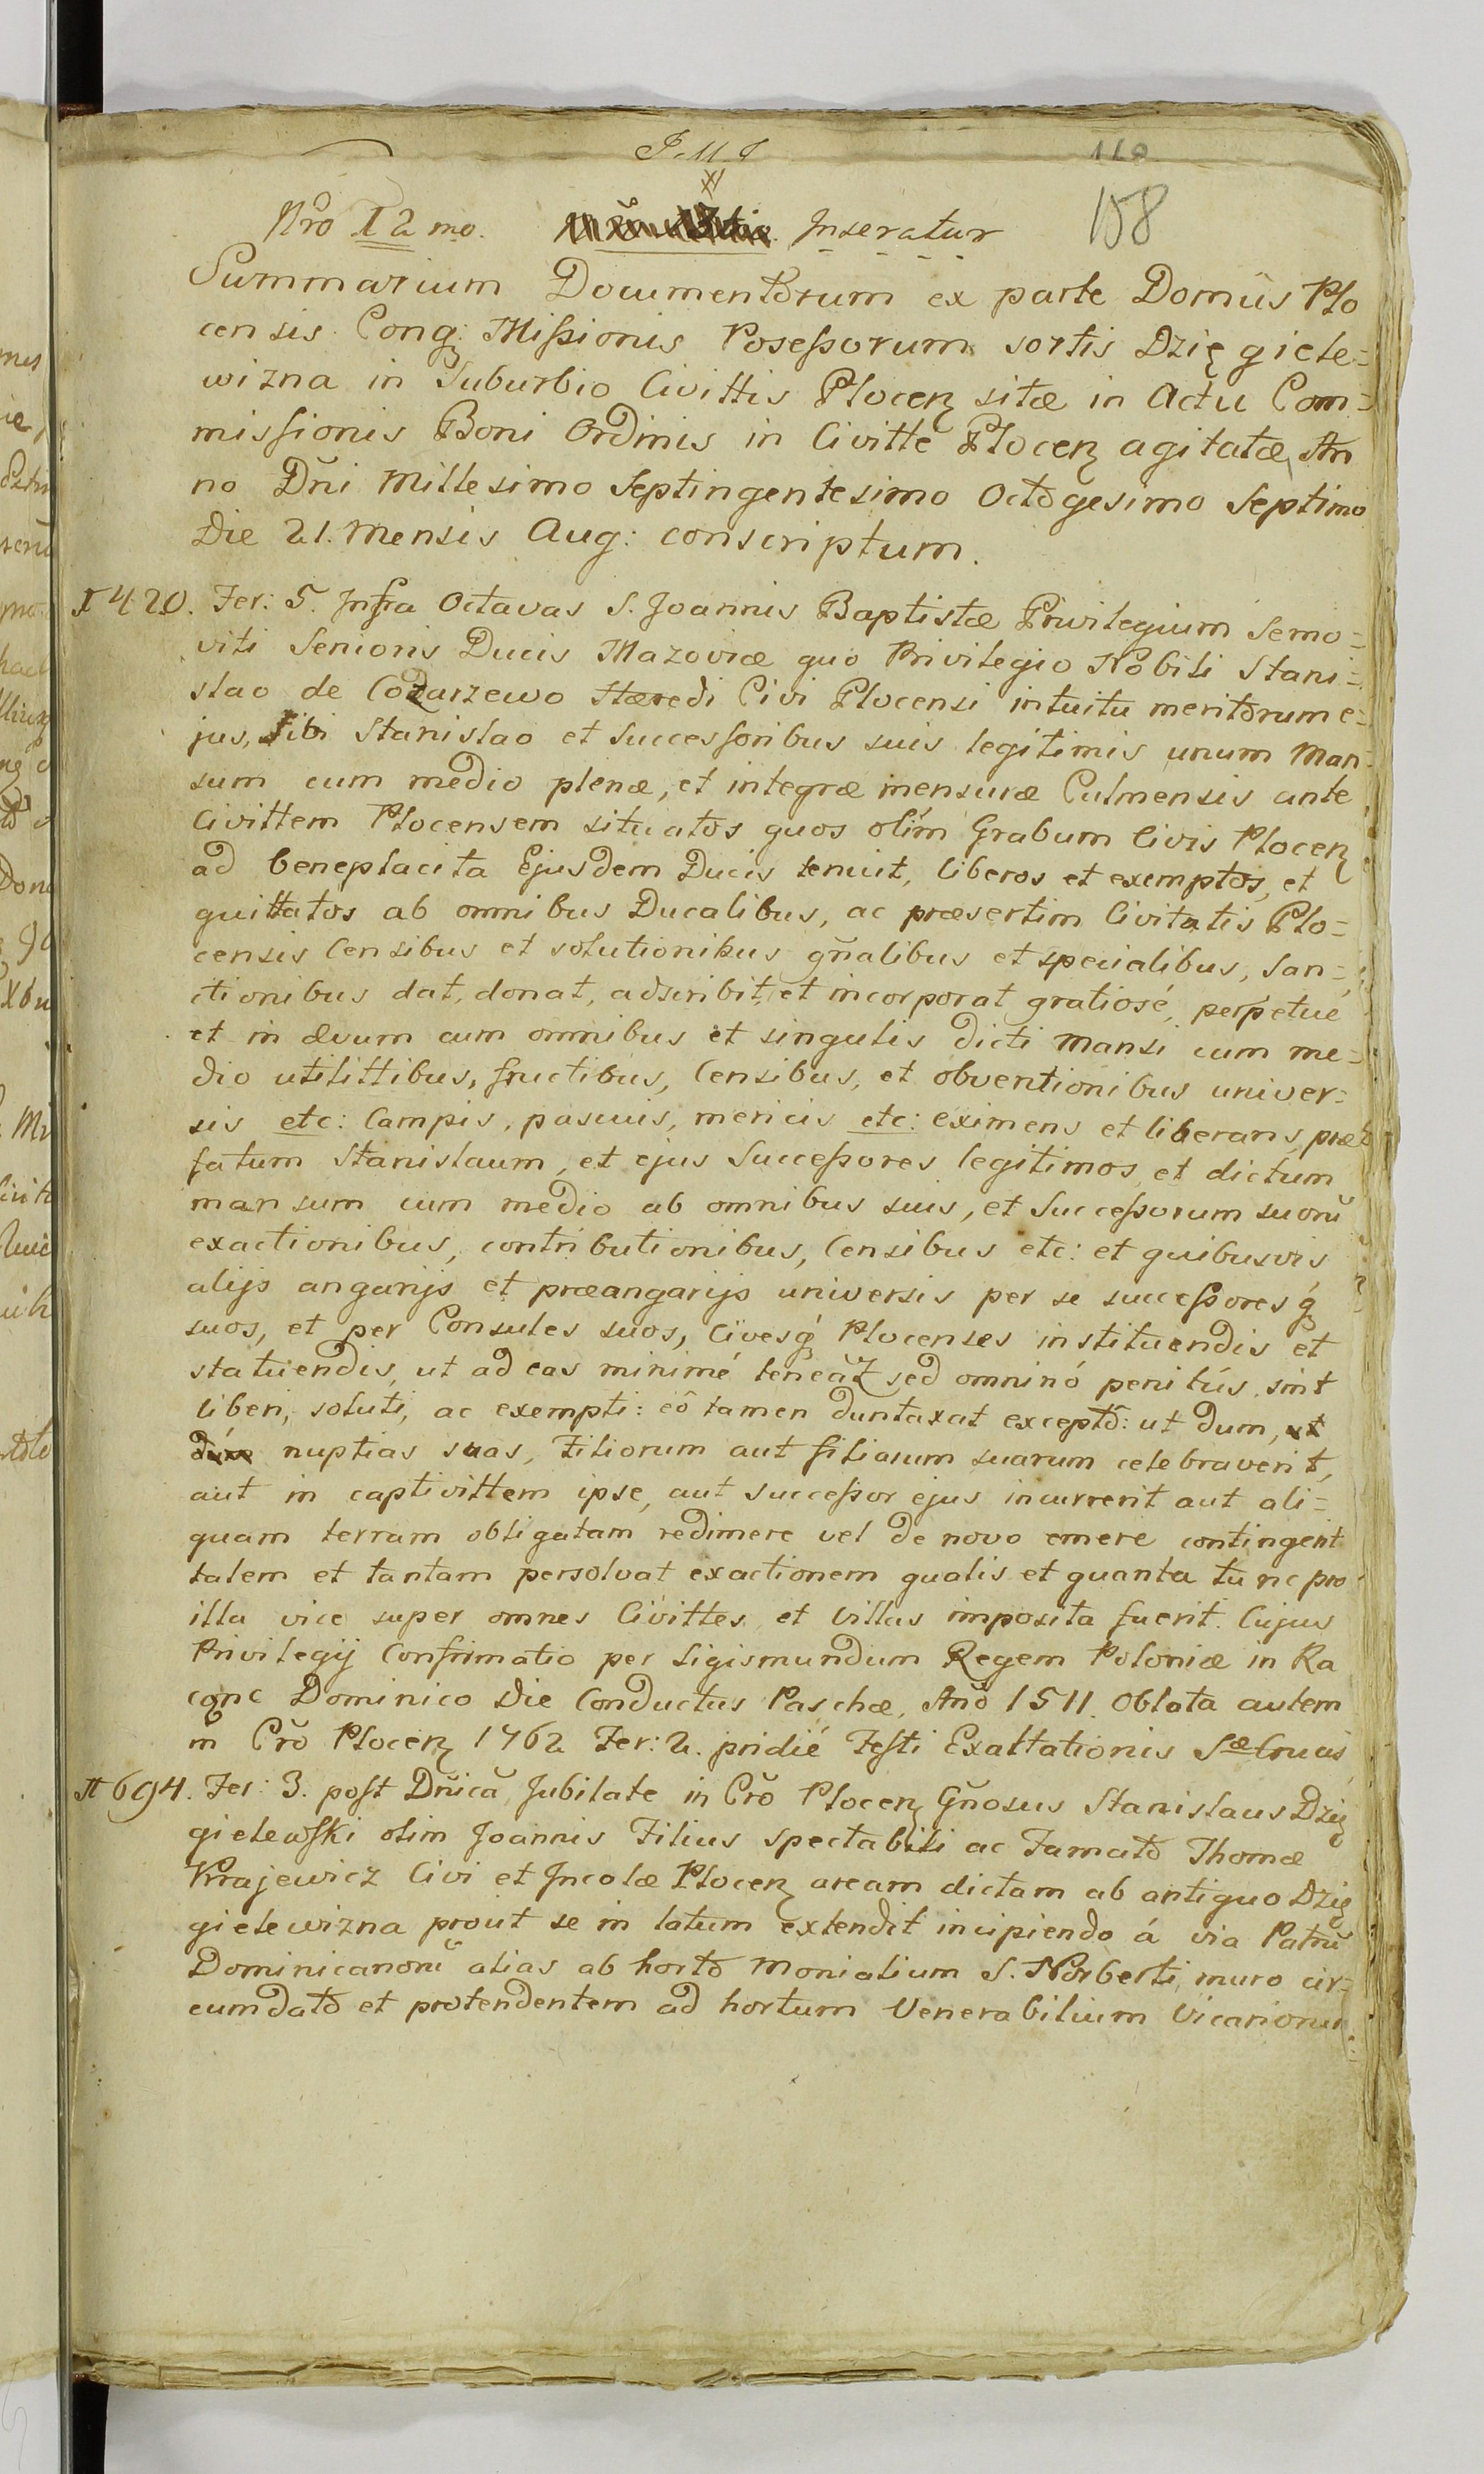 J. M. J
118
158
Nrõ 12 mo. Inseratur
Summarium Documentorum ex parte Domûs Plo
censis Cong: Missionis Possessorum sortis Dzięgiele=
wizna in Suburbio Civittis Plocen sitæ in Actu Com=
missionis Boni Ordinis in Civitte Plocen agitatæ, An
no Dñi Millesimo Septingentesimo Octogesimo Septimo
Die 21. Mensis Aug: conscriptum.
1420. Fer: 5. Infra Octavas S. Joannis Baptistæ Privilegium Semo=
viti Senioris Ducis Mazoviæ quo Privilegio Nobili Stani=
slao de Cozarzewo Hæredi Civi Plocensi intuitu meritorum e=
jus, sibi Stanislao et Successoribus suis legitimis unum Man=
sum cum medio plenæ, et integræ mensuræ Culmensis ante
Civittem Plocensem situatos quos olim Grabum Civis Plocen
ad beneplacita Ejusdem Ducis tenuit, liberos et exemptos, et
quittatos ab omnibus Ducalibus, ac præsertim Civitatis Plo=
censis Censibus et solutionibus gñalibus et specialibus, San=
ctionibus dat, donat, adscribit, et incorporat gratiosé, perpetué
et in ævum cum omnibus et singulis dicti Mansi cum me=
dio utilittibus, fructibus, Censibus, et obventionibus univer=
sis etc: Campis, pascuis, mericis etc: eximens et liberans, præ
fatum Stanislaum, et ejus Successores legitimos, et dictum
mansum cum medio ab omnibus suis, et Successorum suorũ
exactionibus, contributionibus, Censibus etc: et quibusvis
alijs angarijs et præangarijs universis per se successoresq
suos, et per Consules suos, Civesq Plocenses instituendis et
statuendis, ut ad eas minimé teneãt sed omninó penitús sint
liberi, soluti, ac exempti: eô tamen duntaxat exceptô: ut dum, ut
dum nuptias suas, Filiorum aut filiarum suarum celebraverit,
aut in captivittem ipse, aut successor ejus incurrerit aut ali=
quam terram obligatam redimere vel de novo emere contingerit
talem et tantam persolvat exactionem qualis et quanta tunc pro
illa vice super omnes Civittes et Villas imposita fuerit. Cujus
Privilegij Confirmatio per Sigismundum Regem Poloniæ in Ra
conc Dominico Die Conductus Paschæ, Añô 1511. Oblata autem
in Crõ Plocen 1762 Fer: 2. pridié Festi Exaltationis Sæ Crucis
1694. Fer: 3. post Dñicã Jubilate in Crõ Plocen Gñosus Stanislaus Dzię
gielewski olim Joannis Filius Spectabili ac Famatô Thomæ
Krajewicz Civi et Incolæ Plocen aream dictam ab antiquo Dzię
gielewizna prout se in latum extendit incipiendo á via Patrũ
Dominicanorũ alias ab hortô Monialium S. Norberti, muro cir=
cumdatô et protendentem ad hortum Venerabilium Vicariorum